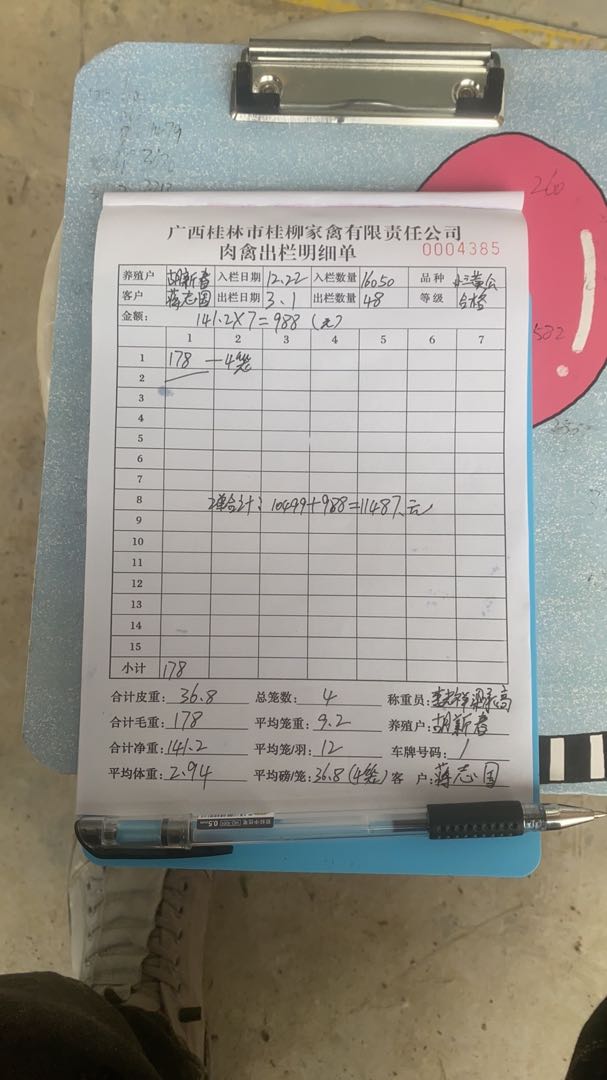 广西桂林市桂柳家禽有限责任公司
肉禽出栏明细单 0004385
养殖户 胡新春 入栏日期 12.22 入栏数量 16050 品种
客户 蒋志国 出栏日期 3.1 出栏数量 48 等级 合格
金额: 141.2×7=988 (元)
1 2 3 4 5 6 7
1 178 —4笼
2
3
4
5
6
7
8 2单合计: 10499+988=11487元
9
10
11
12
13
14
15
小计 178
合计皮重: 36.8 总笼数: 4 称重员:
合计毛重: 178 平均笼重: 9.2 养殖户: 胡新春
合计净重: 141.2 平均笼/羽: 12 车牌号码: 1
平均体重: 2.94 平均磅/笼: 36.8(4笼) 客 户: 蒋志国
0.5
260